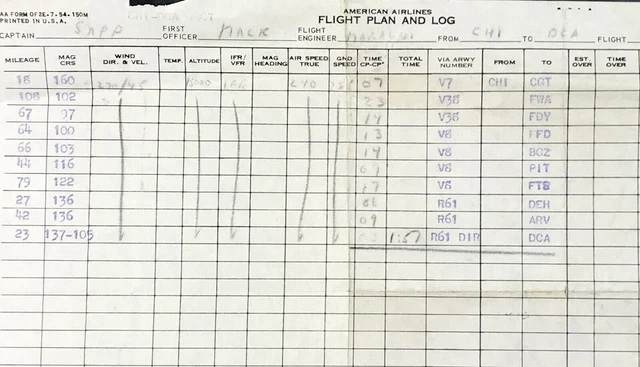 AA FORM OF2E-7-54-150M
PRINTED IN U.S.A.
AMERICAN AIRLINES
FLIGHT PLAN AND LOG
CAPTAIN SAPP FIRST OFFICER MACK FLIGHT ENGINEER FROM CHI TO DCA FLIGHT
MILEAGE MAG CRS WIND DIR. & VEL. TEMP. ALTITUDE IFR/VFR MAG HEADING AIR SPEED TRUE GND SPEED TIME CP-CP' TOTAL TIME VIA ARWY NUMBER FROM TO EST OVER TIME OVER
18 160 270/45 15000 IFR 240 07 V7 CHI CGT
108 102 23 V38 FWA
67 97 14 V38 FDY
64 100 13 V8 FFD
66 103 14 V8 BGZ
44 116 09 V8 PIT
79 122 17 V8 FTB
27 136 06 R61 DEH
42 136 09 R61 ARV
23 137-105 1:57 R61 DIR DCA